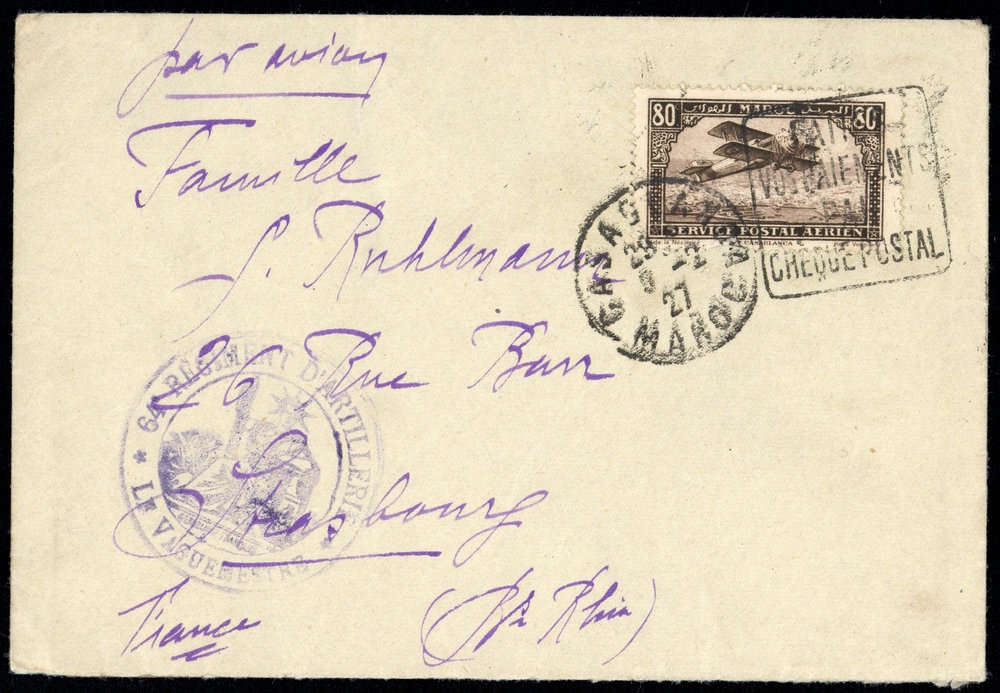 par avion
Famille
J. Ruhlmann
26, Rue Barr
Strasbourg
France (Bs Rhin)
80 MAROC 80
SERVICE POSTAL AÉRIEN
CASABLANCA
CASABLANCA
27
MAROC
VOS PAIEMENTS
CHEQUE POSTAL
64e RÉGIMENT D'ARTILLERIE
* LE VAGUEMESTRE *